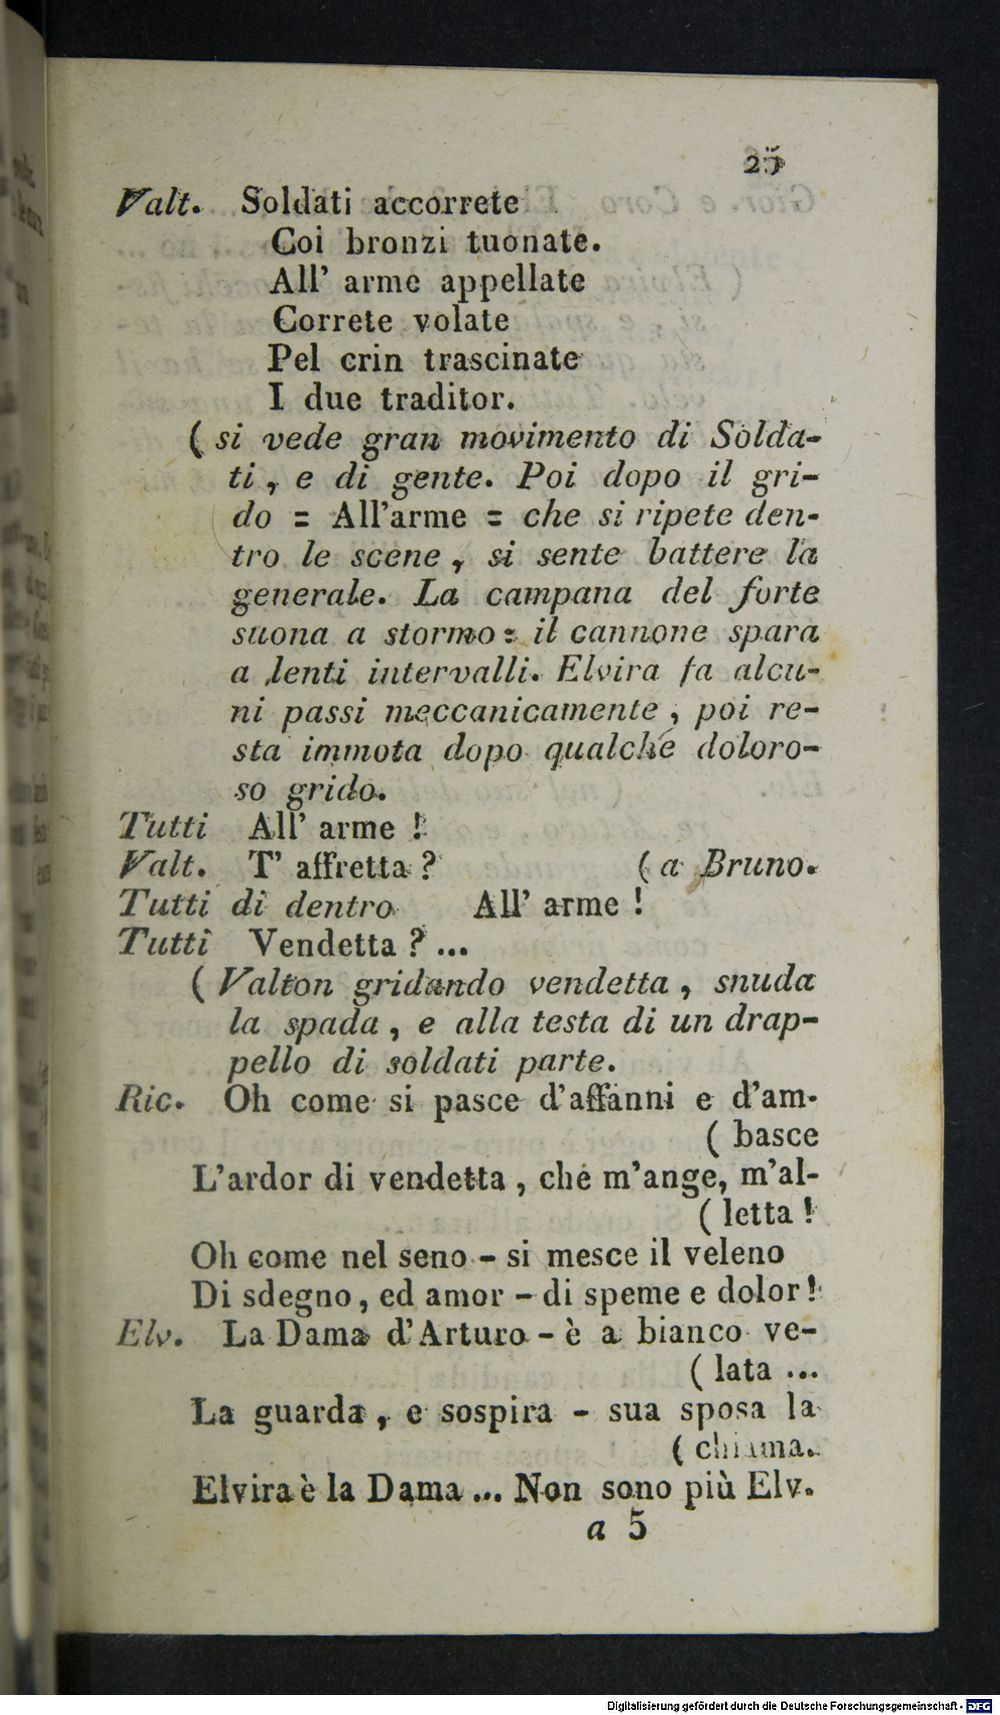 25
Valt. Soldati accorrete
Coi bronzi tuonate.
All' arme appellate
Correte volate
Pel crin trascinate
I due traditor.
( si vede gran movimento di Solda-
ti, e di gente. Poi dopo il gri-
do = All'arme = che si ripete den-
tro le scene, si sente battere la
generale. La campana del forte
suona a stormo: il cannone spara
a lenti intervalli. Elvira fa alcu-
ni passi meccanicamente, poi re-
sta immota dopo qualche doloro-
so grido.
Tutti All' arme !
Valt. T' affretta ? ( a Bruno.
Tutti di dentro All' arme !
Tutti Vendetta ? ...
( Valton gridando vendetta, snuda
la spada, e alla testa di un drap-
pello di soldati parte.
Ric. Oh come si pasce d'affanni e d'am-
( basce
L'ardor di vendetta, che m'ange, m'al-
( letta !
Oh come nel seno - si mesce il veleno
Di sdegno, ed amor - di speme e dolor !
Elv. La Dama d'Arturo - è a bianco ve-
( lata ...
La guarda, e sospira - sua sposa la
( chiama.
Elvira è la Dama ... Non sono più Elv.
a 5
Digitalisierung gefördert durch die Deutsche Forschungsgemeinschaft - DFG